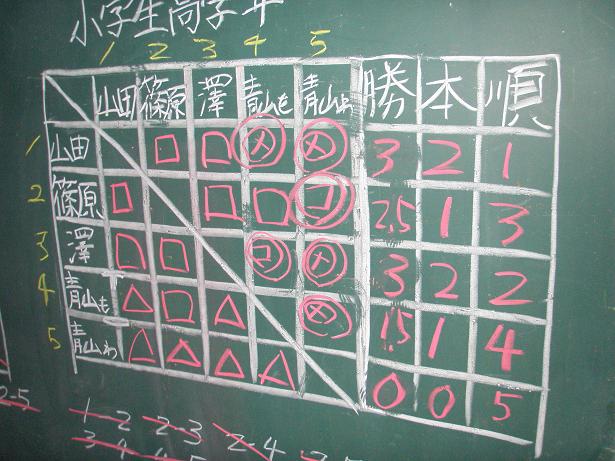 小学生高学年
1 2 3 4 5
山田 篠原 澤 青山も 青山わ 勝 本 順
1 山田 □ □ ㋱ ㋱ 3 2 1
2 篠原 □ □ □ ㋙ 2.5 1 3
3 澤 □ □ ㋙ ㋱ 3 2 2
4 青山も △ □ △ ㋱ 1.5 1 4
5 青山わ △ △ △ △ 0 0 5
2-5 1-2 2-3 2-4